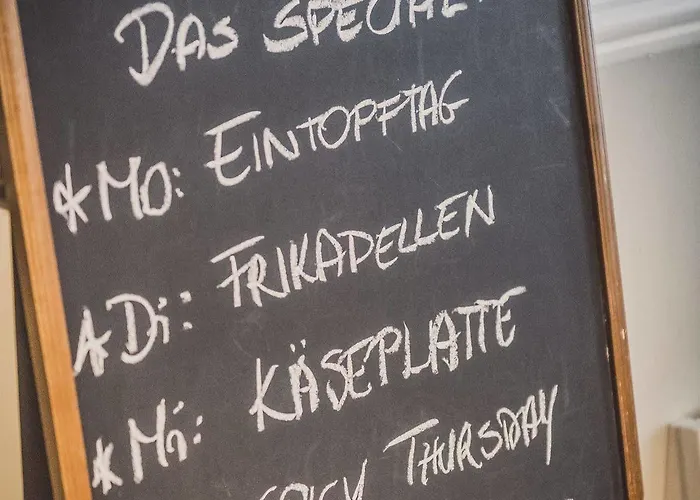 Das Special
* Mo: Eintopftag
* Di: Frikadellen
* Mi: Käseplatte
Spicy Thursday